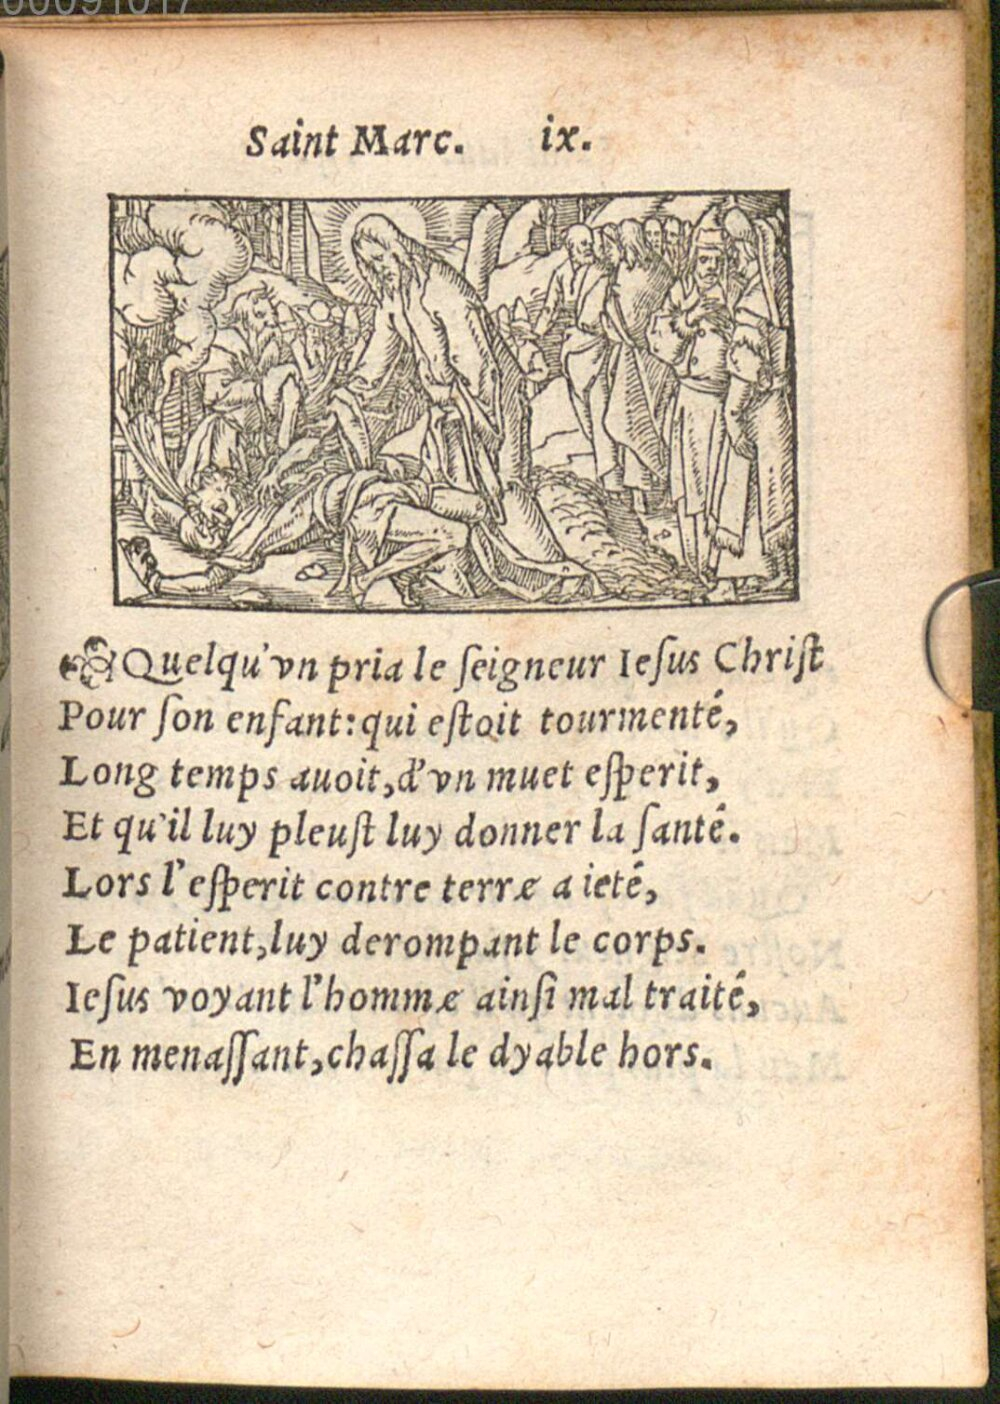 Saint Marc. ix.
Quelqu'vn pria le ſeigneur Ieſus Chriſt
Pour ſon enfant: qui eſtoit tourmenté,
Long temps auoit, d'vn muet eſperit,
Et qu'il luy pleuſt luy donner la ſanté.
Lors l'eſperit contre terræ a ieté,
Le patient, luy derompant le corps.
Ieſus voyant l'hommæ ainſi mal traité,
En menaſſant, chaſſa le dyable hors.